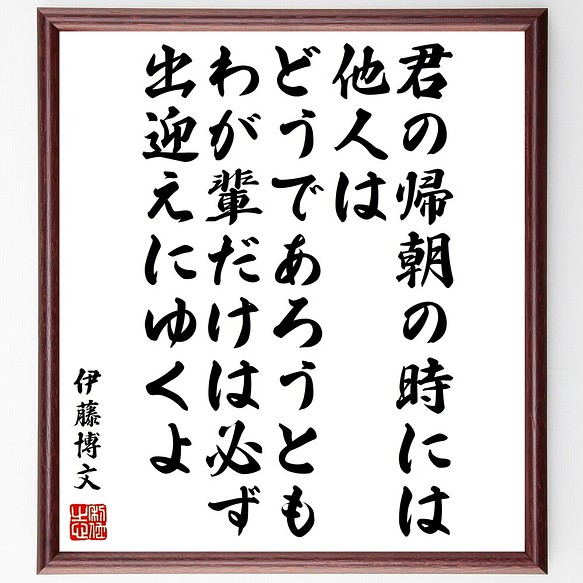 君の帰朝の時には
他人は
どうであろうとも
わが輩だけは必ず
出迎えにゆくよ
伊藤博文